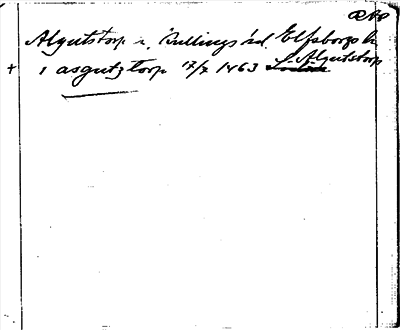 Algutstorp s. Kullings hd. Elfsborgs l.
L. Algutstorp
+ i asgutztorp 17/7 1463